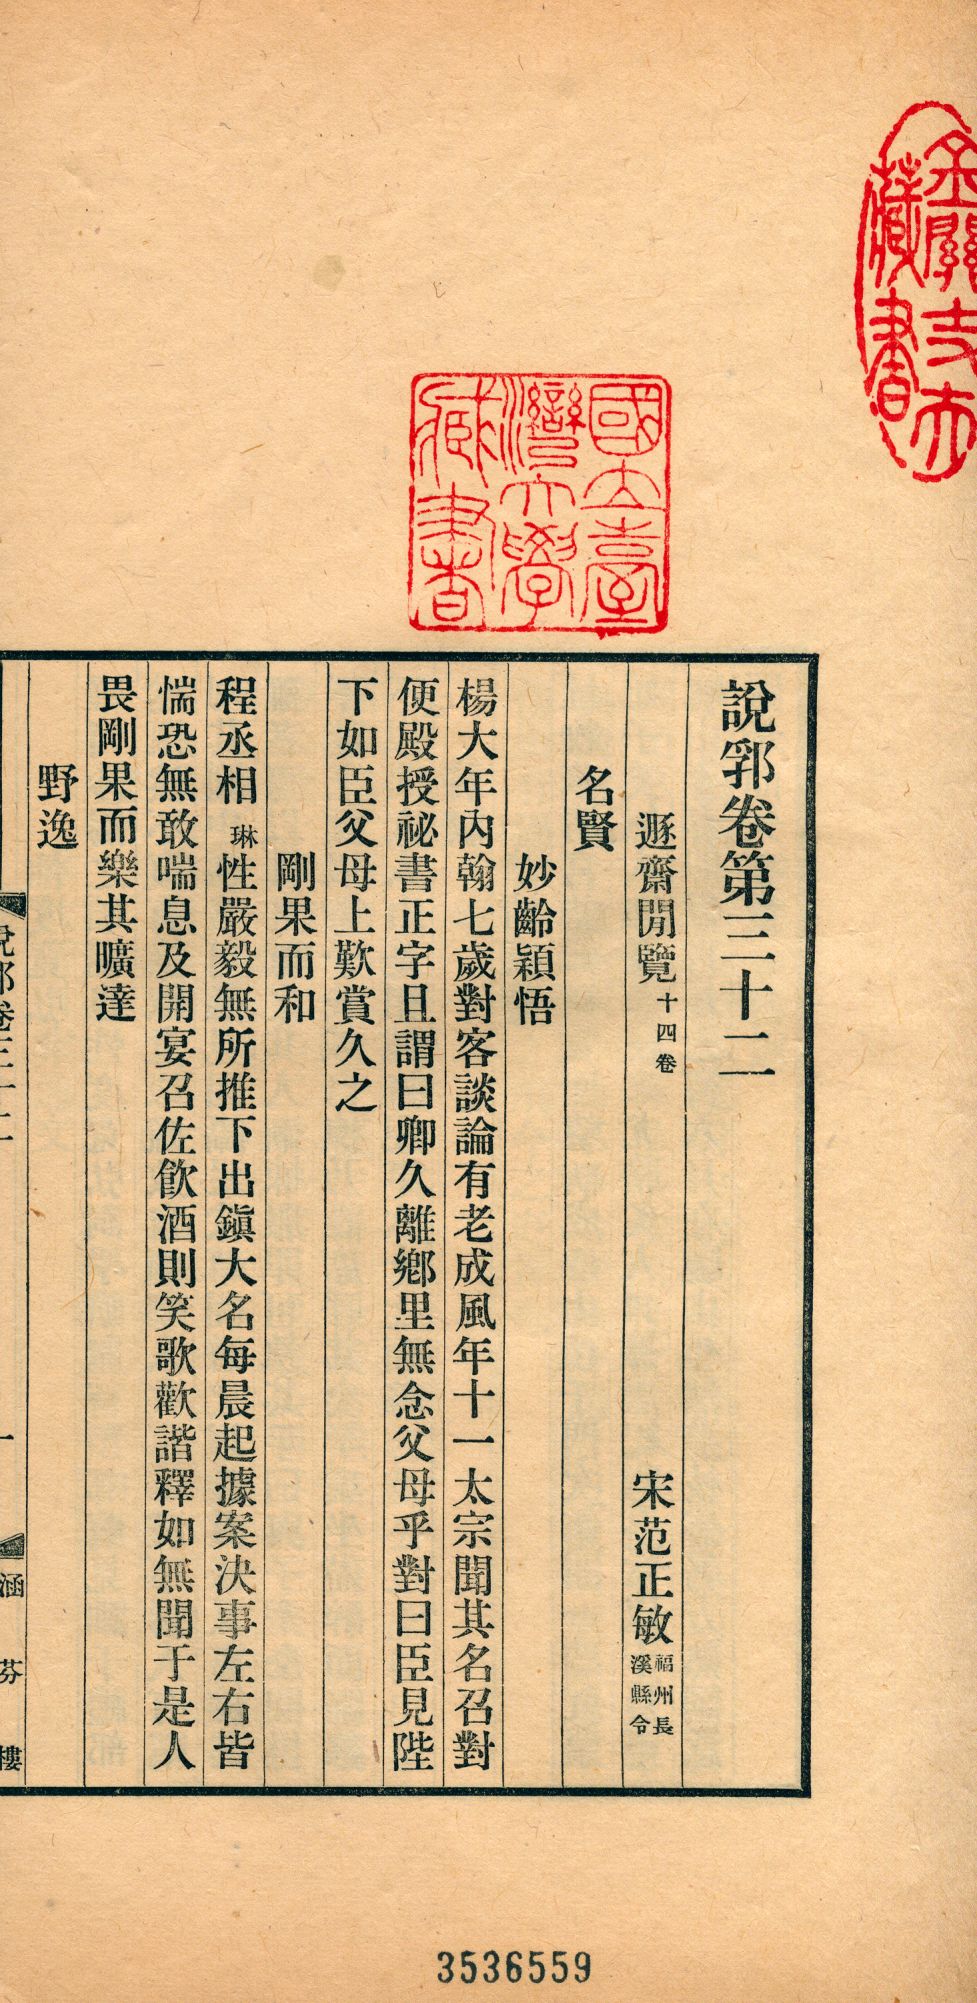 說郛卷第三十二
遯齋閒覽十四卷 宋范正敏福州長溪縣令
名賢
妙齡穎悟
楊大年內翰七歲對客談論有老成風年十一太宗聞其名召對
便殿授祕書正字且謂曰卿久離鄉里無念父母乎對曰臣見陛
下如臣父母上歎賞久之
剛果而和
程丞相琳性嚴毅無所推下出鎭大名每晨起據案決事左右皆
惴恐無敢喘息及開宴召佐飮酒則笑歌歡諧釋如無聞于是人
畏剛果而樂其曠達
野逸
說郛卷三十二 一 涵芬樓
國立臺灣大學藏書
3536559